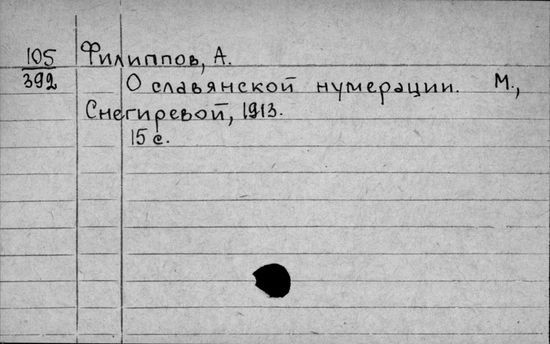 105 Филиппов, А.
392 О славянской нумерации. М.,
Снегиревой, 1913.
15 с.